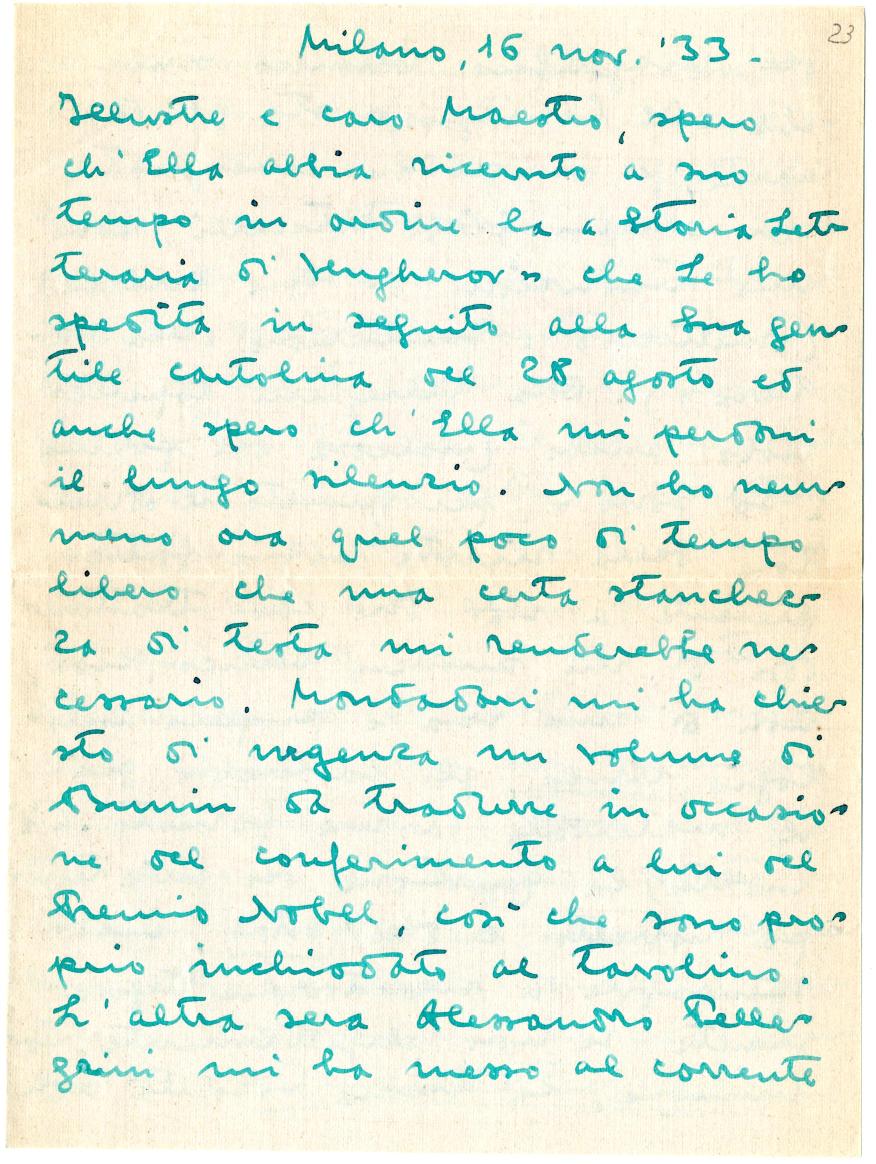 23
Milano, 16 nov. '33 -
Illustre e caro Maestro, spero
ch' Ella abbia ricevuto a suo
tempo in ordine la « Storia Let-
teraria di Vengherov » che Le ho
spedita in seguito alla Sua gen-
tile cartolina del 28 agosto ed
anche spero ch' Ella mi perdoni
il lungo silenzio. Non ho nem-
meno ora quel poco di tempo
libero che una certa stanchez-
za di testa mi renderebbe ne-
cessario. Mondadori mi ha chie-
sto di urgenza un volume di
Bunin da tradurre in occasio-
ne del conferimento a lui del
Premio Nobel, così che sono pro-
prio inchiodato al tavolino.
L' altra sera Alessandro Pelle-
grini mi ha messo al corrente